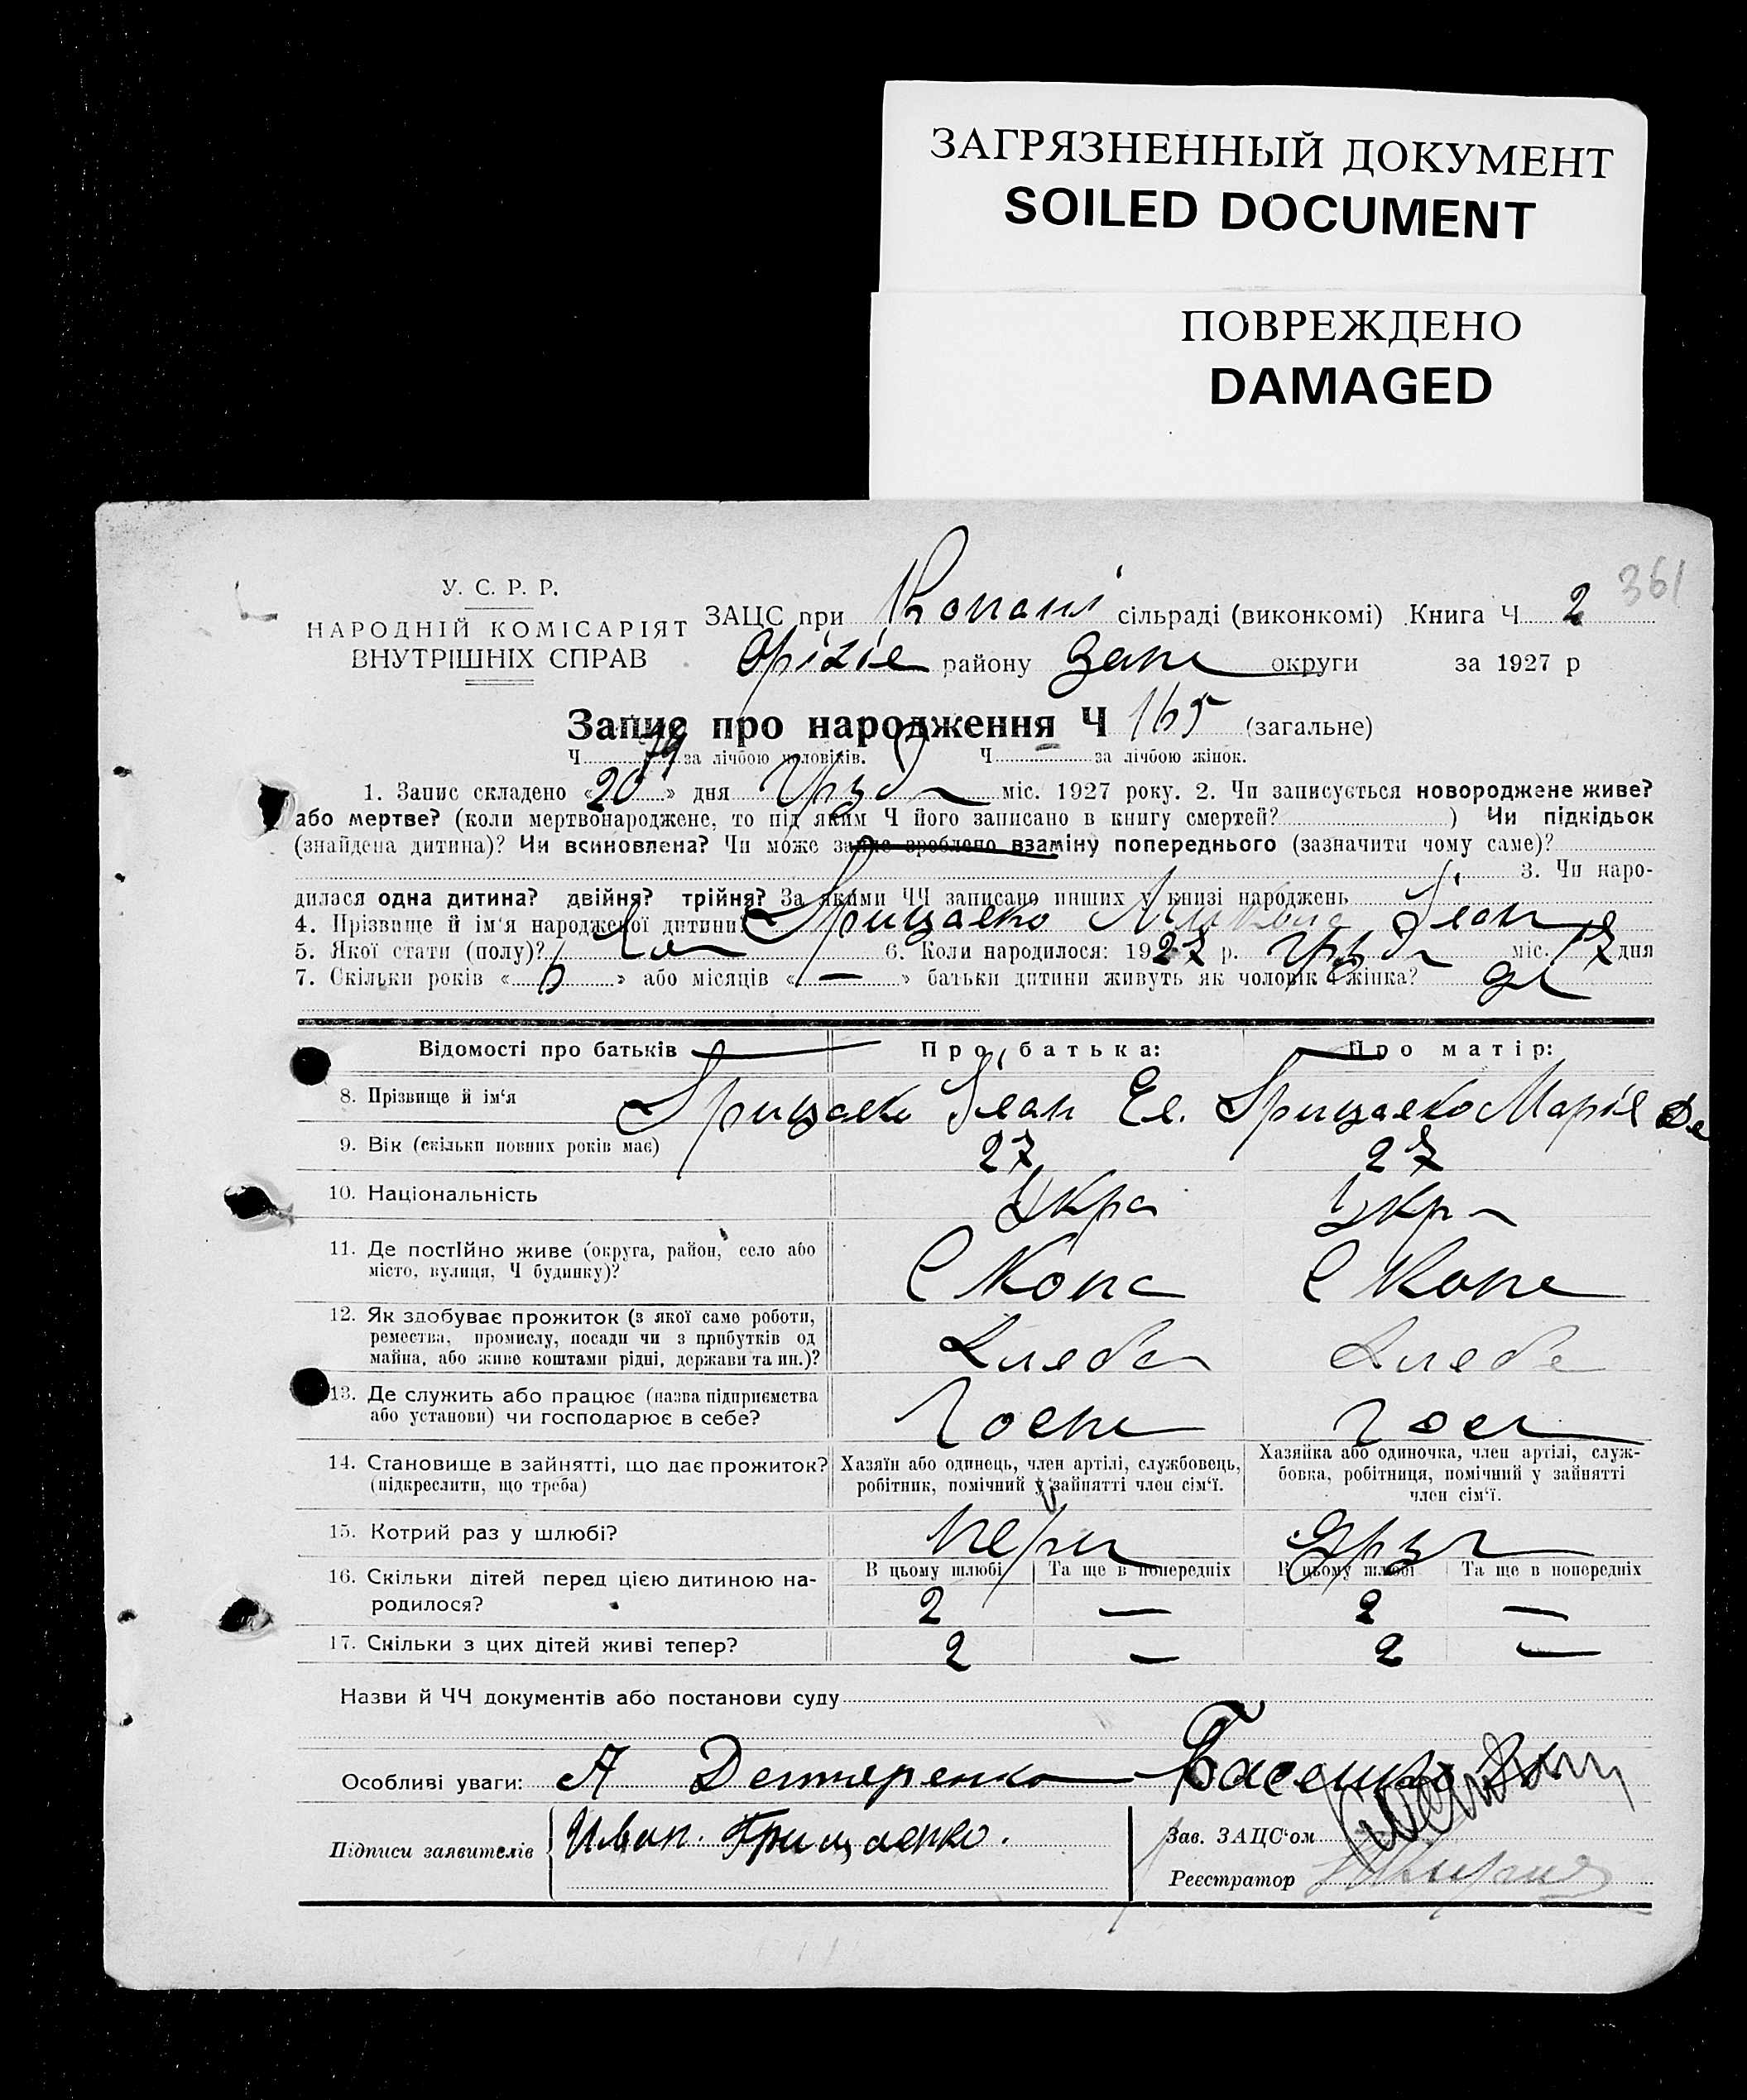 ЗАГРЯЗНЕННЫЙ ДОКУМЕНТ
SOILED DOCUMENT
ПОВРЕЖДЕНО
DAMAGED
361
У. С. Р. Р.
НАРОДНІЙ КОМІСАРІЯТ
ВНУТРІШНІХ СПРАВ
ЗАЦС при Копані сільраді (виконкомі) Книга Ч 2
Оріхів району Запо округи за 1927 р
Запис про народження Ч 165 (загальне)
Ч 79 за лічбою чоловіків. Ч за лічбою жінок.
1. Запис складено «20» дня Груд міс. 1927 року. 2. Чи записується новороджене живе?
або мертве? (коли мертвонароджене, то під яким Ч його записано в книгу смертей? ) Чи підкідьок
(знайдена дитина)? Чи всиновлена? Чи може запис зроблено взаміну попереднього (зазначити чому саме)?
3. Чи наро-
дилася одна дитина? двійня? трійня? За якими ЧЧ записано инших у книзі народжень
4. Прізвище й ім'я народженої дитини: Грищаенко Микола Іван
5. Якої стати (полу)? 6. Коли народилося: 1927 р. Груд міс. 17 дня
7. Скільки років «6» або місяців «—» батьки дитини живуть як чоловік і жінка?
Відомості про батьків Про батька: Про матір:
8. Прізвище й ім'я Грищаенко Іван Ев. Грищаенко Марія Де
9. Вік (скільки повних років має) 27 27
10. Національність Укра Укра
11. Де постІйно живе (округа, район, село або
місто, вулиця, Ч будинку)? С Копа С Копа
12. Як здобуває прожиток (з якої саме роботи,
ремества, промислу, посади чи з прибутків од
майна, або живе коштами рідні, держави та ин.)? Хлеба Хлеба
13. Де служить або працює (назва підприємства
або установи) чи господарює в себе? Госпо Госп
14. Становище в зайнятті, що дає прожиток?
(підкреслити, що треба)
Хазяїн або одинець, член артілі, службовець,
робітник, помічний у зайнятті член сім'ї.
Хазяйка або одиночка, член артілі, служ-
бовка, робітниця, помічний у зайнятті
член сім'ї.
15. Котрий раз у шлюбі? Перш Друг
В цьому шлюбі Та ще в попередніх В цьому шлюбі Та ще в попередніх
16. Скільки дітей перед цією дитиною на-
родилося? 2 — 2 —
17. Скільки з цих дітей живі тепер? 2 — 2 —
Назви й ЧЧ документів або постанови суду
Особливі уваги: А Дегтяренко
Підписи заявителів Иван. Грищаенко.
Зав. ЗАЦС'ом
Реєстратор